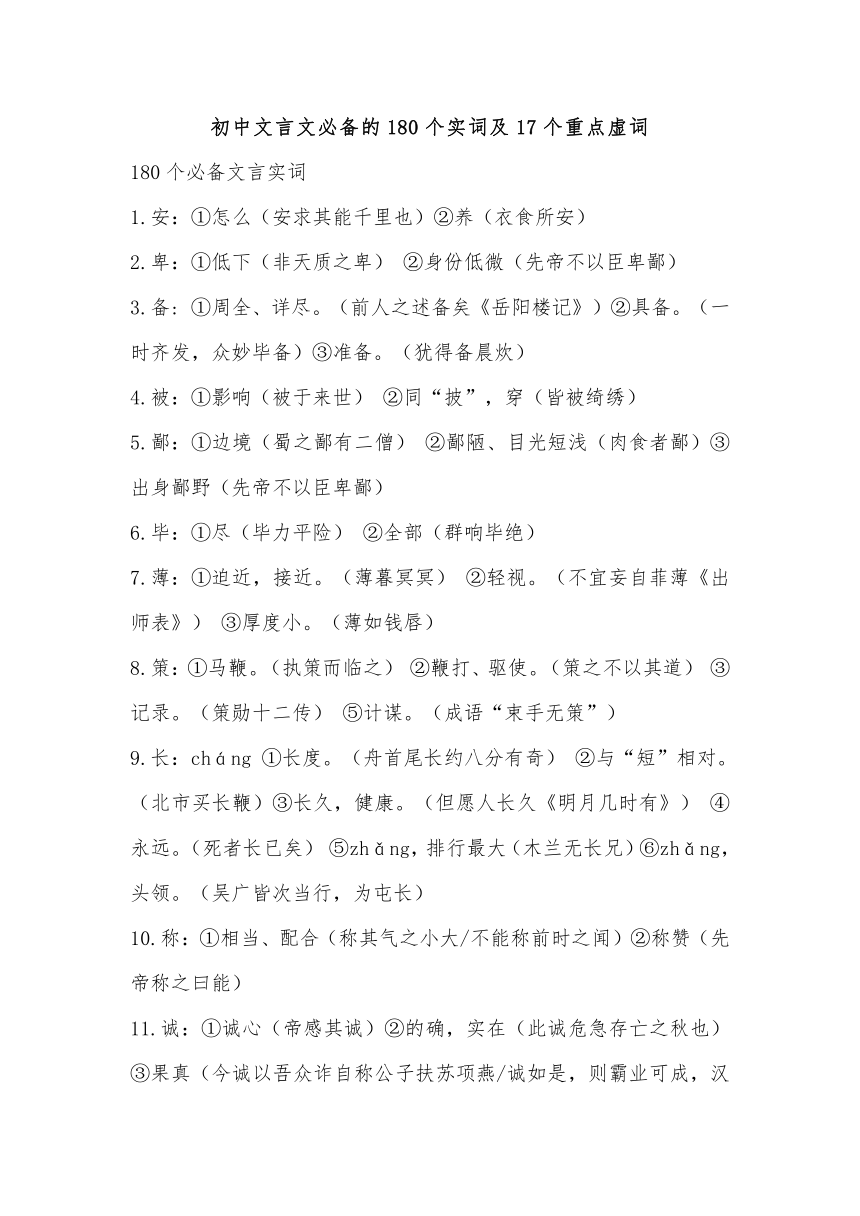 初中文言文必备的180个实词及17个重点虚词
180个必备文言实词
1.安：①怎么（安求其能千里也）②养（衣食所安）
2.卑：①低下（非天质之卑） ②身份低微（先帝不以臣卑鄙）
3.备：①周全、详尽。（前人之述备矣《岳阳楼记》）②具备。（一
时齐发，众妙毕备）③准备。（犹得备晨炊）
4.被：①影响（被于来世） ②同“披”，穿（皆被绮绣）
5.鄙：①边境（蜀之鄙有二僧） ②鄙陋、目光短浅（肉食者鄙）③
出身鄙野（先帝不以臣卑鄙）
6.毕：①尽（毕力平险） ②全部（群响毕绝）
7.薄：①迫近，接近。（薄暮冥冥） ②轻视。（不宜妄自菲薄《出
师表》） ③厚度小。（薄如钱唇）
8.策：①马鞭。（执策而临之） ②鞭打、驱使。（策之不以其道） ③
记录。（策勋十二传） ⑤计谋。（成语“束手无策”）
9.长：cháng ①长度。（舟首尾长约八分有奇） ②与“短”相对。
（北市买长鞭）③长久，健康。（但愿人长久《明月几时有》） ④
永远。（死者长已矣） ⑤zhǎng，排行最大（木兰无长兄）⑥zhǎng，
头领。（吴广皆次当行，为屯长）
10.称：①相当、配合（称其气之小大/不能称前时之闻）②称赞（先
帝称之曰能）
11.诚：①诚心（帝感其诚）②的确，实在（此诚危急存亡之秋也）
③果真（今诚以吾众诈自称公子扶苏项燕/诚如是，则霸业可成，汉